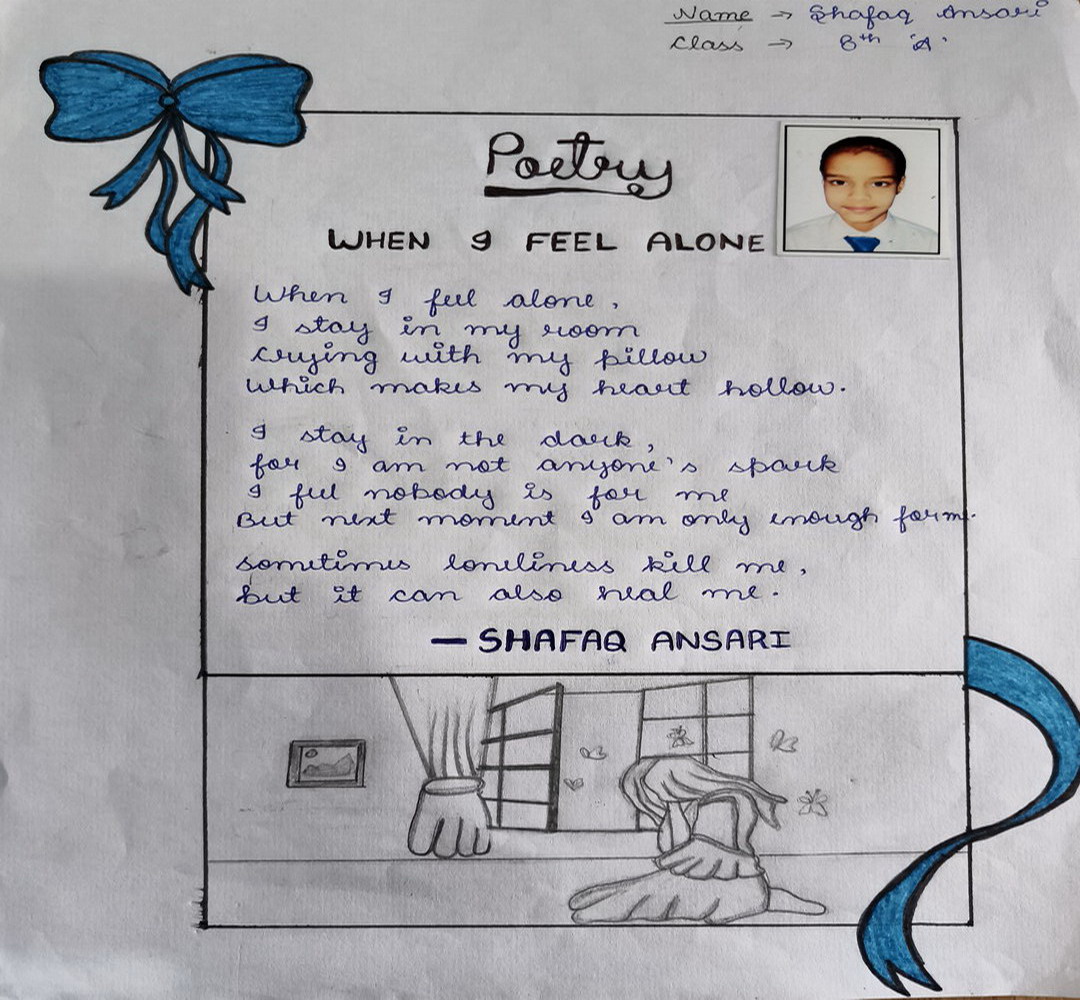 Name → Shafaq Ansari
Class → 8th 'A'
Poetry
WHEN I FEEL ALONE
When I feel alone,
I stay in my room
crying with my pillow
which makes my heart hollow.
I stay in the dark,
for I am not anyone's spark
I feel nobody is for me
But next moment I am only enough for me.
sometimes loneliness kill me,
but it can also heal me.
— SHAFAQ ANSARI